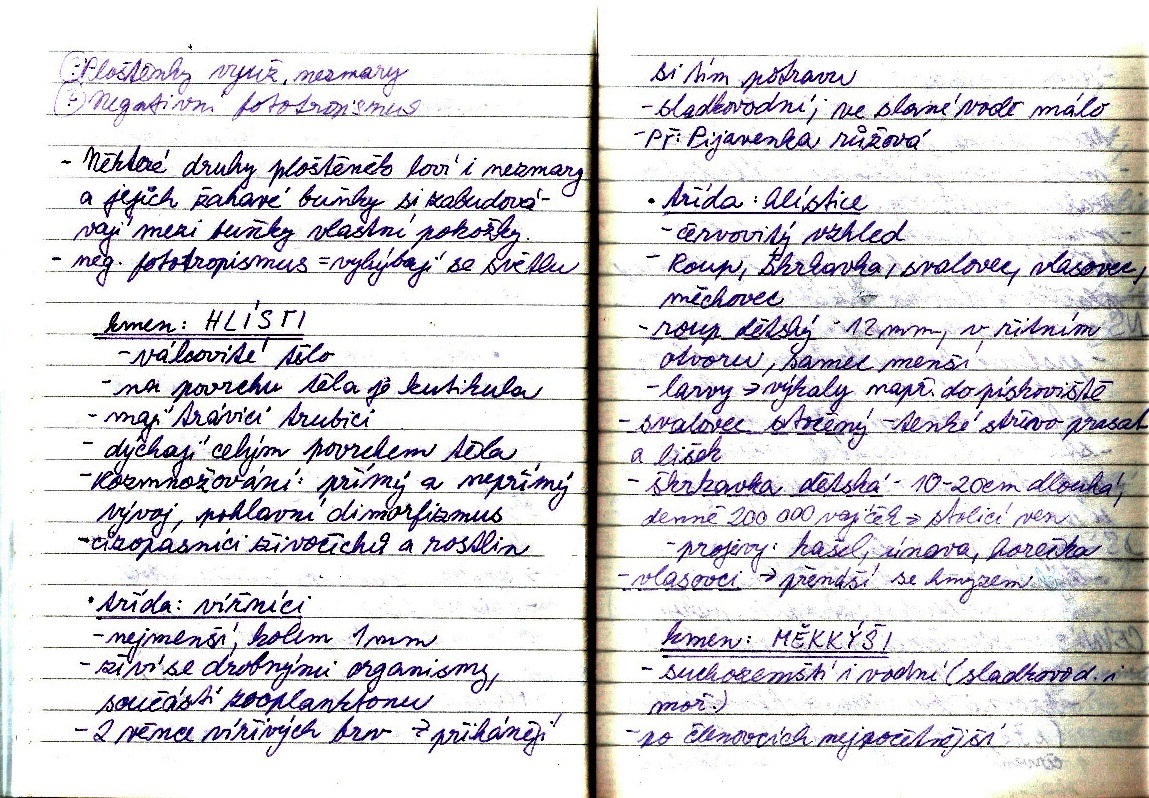 ? Ploštěnky využ. nezmary
? Negativní fototropismus
- Některé druhy ploštěnek loví i nezmary
a jejich žahavé buňky si zabudová-
vají mezi buňky vlastní pokožky.
- neg. fototropismus = vyhýbají se světlu
kmen: HLÍSTI
- válcovité tělo
- na povrchu těla je kutikula
- mají trávicí trubici
- dýchají celým povrchem těla
- Rozmnožování: přímý a nepřímý
vývoj, pohlavní dimorfizmus
- cizopasníci živočichů a rostlin
• třída: vířníci
- nejmenší, kolem 1 mm
- živí se drobnými organismy,
součástí zooplanktonu
- 2 věnce vířivých brv → přihánějí
si tím potravu
- sladkovodní; ve slané vodě málo
- Př: Pijavenka růžová
• třída: hlístice
- červovitý vzhled
- Roup, škrkavka, svalovec, vlasovec,
měchovec
- roup dětský - 12 mm, v řitním
otvoru, samec menší
- larvy → výkaly např. do pískoviště
- svalovec stočený - tenké střevo prasat
a lišek
- škrkavka dětská - 10-20cm dlouhá,
denně 200 000 vajíček → stolicí ven
- projevy: kašel, únava, horečka
- vlasovci → přenáší se hmyzem
kmen: MĚKKÝŠI
- suchozemští i vodní (sladkovod. i
moř.)
- po členovcích nejpočetnější